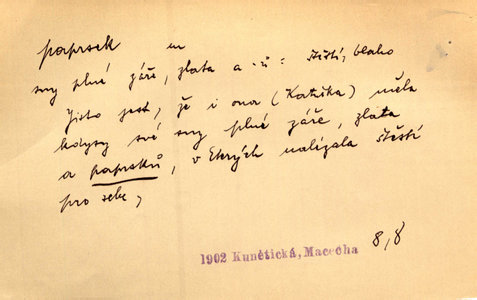 paprsek m
sny plné záře, zlata a -ů = štěstí, blaho
Jisto jest, že i ona (Katuška) měla
kdysy své sny plné záře, zlata
a paprsků, v kterých nalézala štěstí
pro sebe,
1902 Kunětická, Macecha 8,8